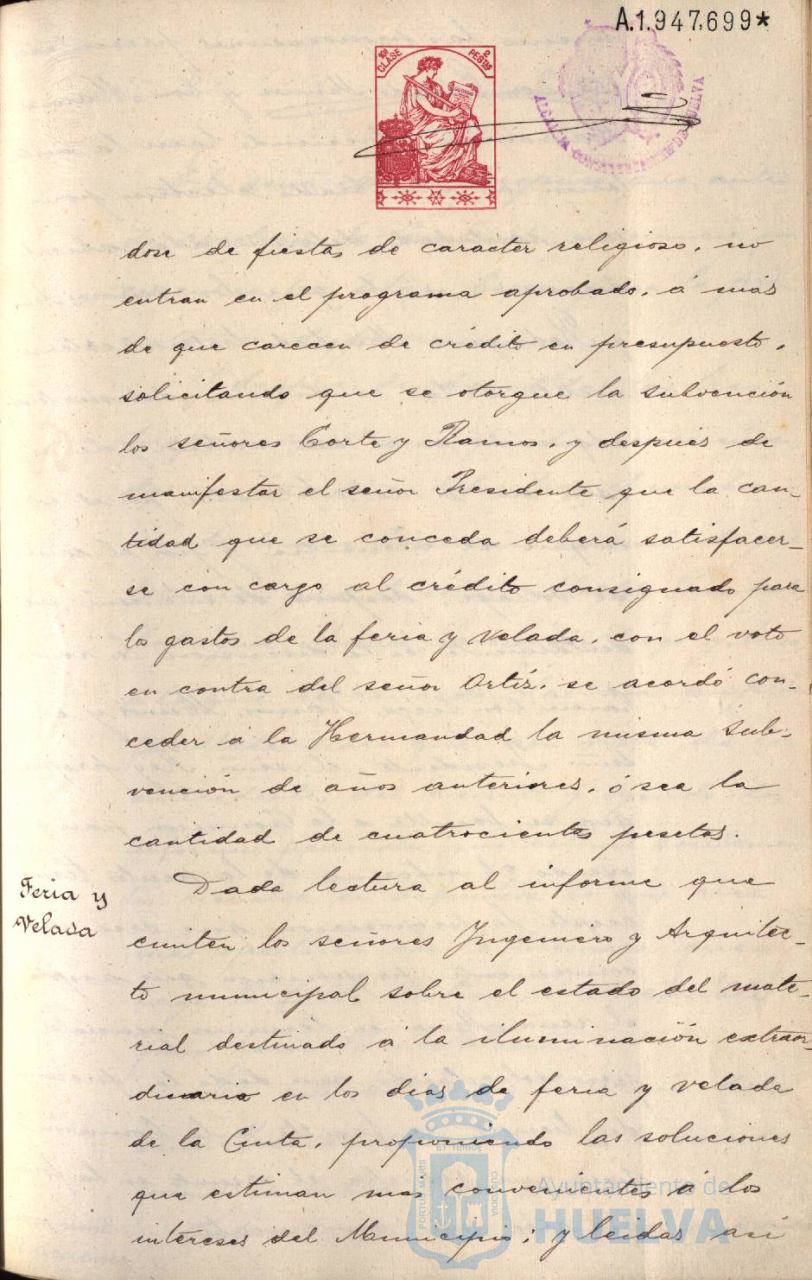 A.1.947.699*
10ª CLASE
2 PESETAS
ALCALDIA CONSTITUCIONAL DE HUELVA
dose de fiestas de caracter religioso, no
entran en el programa aprobado, á más
de que carecen de crédito en presupuesto,
solicitando que se otorgue la subvención
los señores Corte y Ramos, y después de
manifestar el señor Presidente que la can-
tidad que se conceda deberá satisfacer-
se con cargo al crédito consignado para
los gastos de la feria y velada, con el voto
en contra del señor Ortiz, se acordó con-
ceder á la Hermandad la misma sub-
vención de años anteriores, ó sea la
cantidad de cuatrocientas pesetas.
Feria y
Velada
Dada lectura al informe que
emiten los señores Ingeniero y Arquitec-
to municipal sobre el estado del mate-
rial destinado á la iluminación extraor-
dinaria en los dias de feria y velada
de la Cinta, proponiendo las soluciones
que estiman mas convenientes á los
intereses del Municipio, y leidas así
PORTUS MARIS ET TERRAE CUSTODIA
Ayuntamiento de
HUELVA